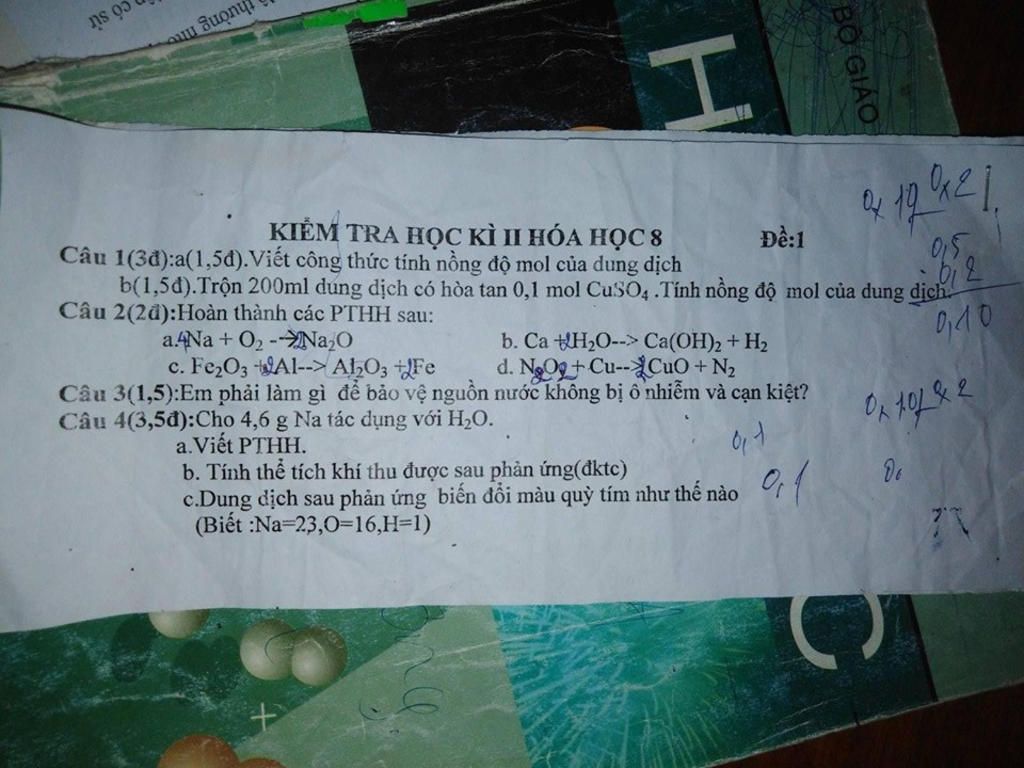 ấp có sử
đá thường như
H
BỘ GIÁO
KIỂM TRA HỌC KÌ II HÓA HỌC 8 Đề:1
Câu 1(3đ):a(1,5đ).Viết công thức tính nồng độ mol của dung dịch
b(1,5đ).Trộn 200ml dung dịch có hòa tan 0,1 mol CuSO₄ .Tính nồng độ mol của dung dịch.
Câu 2(2đ):Hoàn thành các PTHH sau:
a.4Na + O₂ --> 2Na₂O b. Ca +2H₂O--> Ca(OH)₂ + H₂
c. Fe₂O₃ +2Al--> Al₂O₃ +2Fe d. N₂O₂ + Cu-->2CuO + N₂
Câu 3(1,5):Em phải làm gì để bảo vệ nguồn nước không bị ô nhiễm và cạn kiệt?
Câu 4(3,5đ):Cho 4,6 g Na tác dụng với H₂O.
a.Viết PTHH.
b. Tính thể tích khí thu được sau phản ứng(đktc)
c.Dung dịch sau phản ứng biến đổi màu quỳ tím như thế nào
(Biết :Na=23,O=16,H=1)
0,5
0,2
0,10
0,1
0,1
C